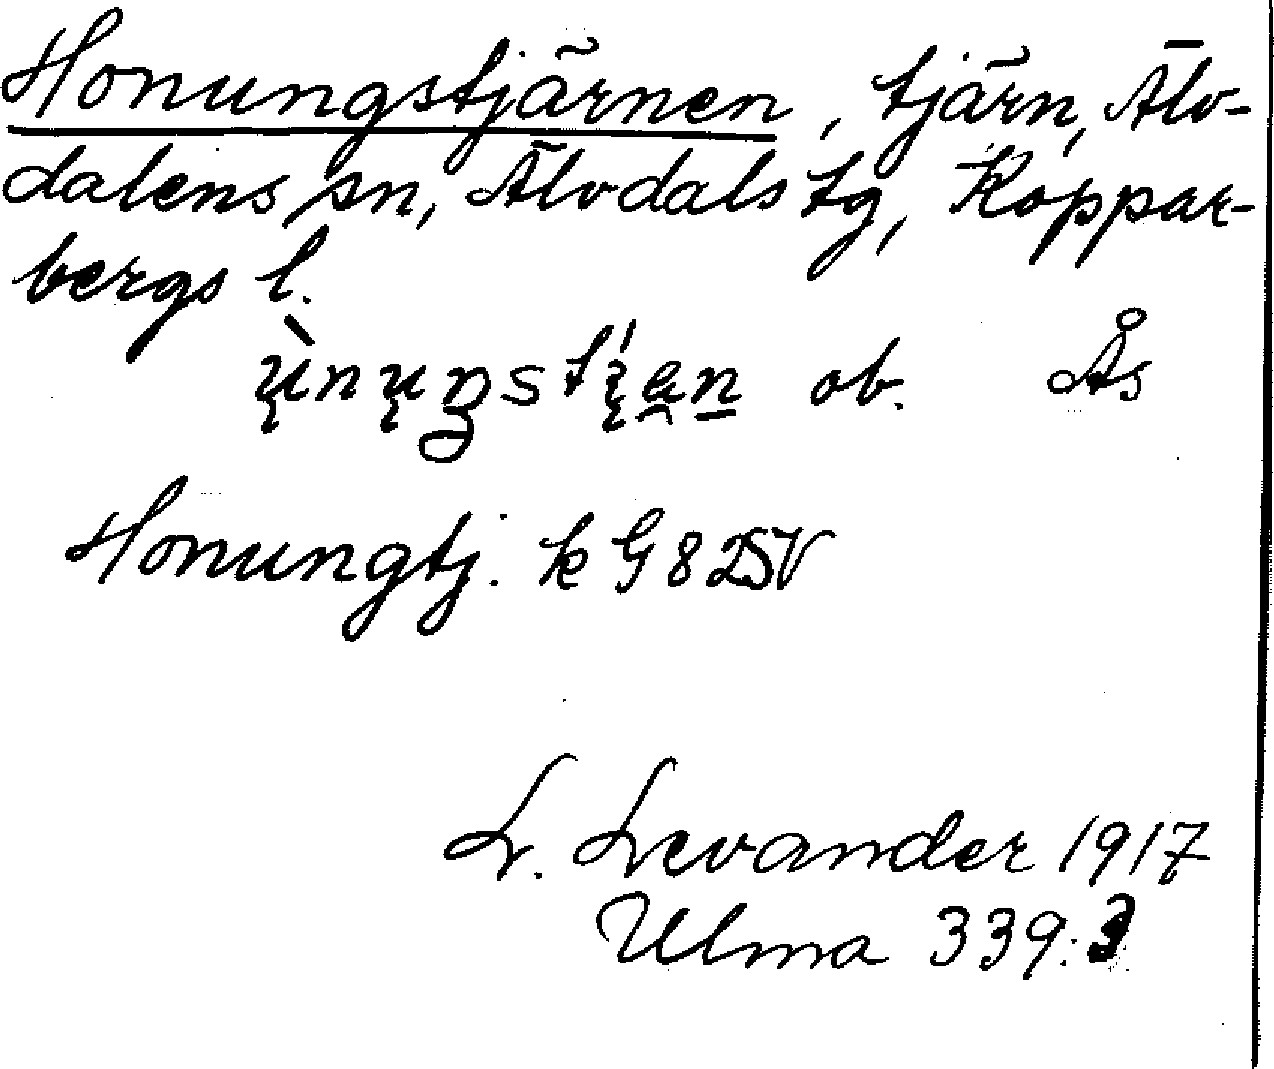 Honungstjärnen, tjärn, Älv-
dalens sn, Älvdals tg, Koppar-
bergs l.
ob. Ås
Honungtj. k G 8 25V
L. Levander 1917
Ulma 339:3